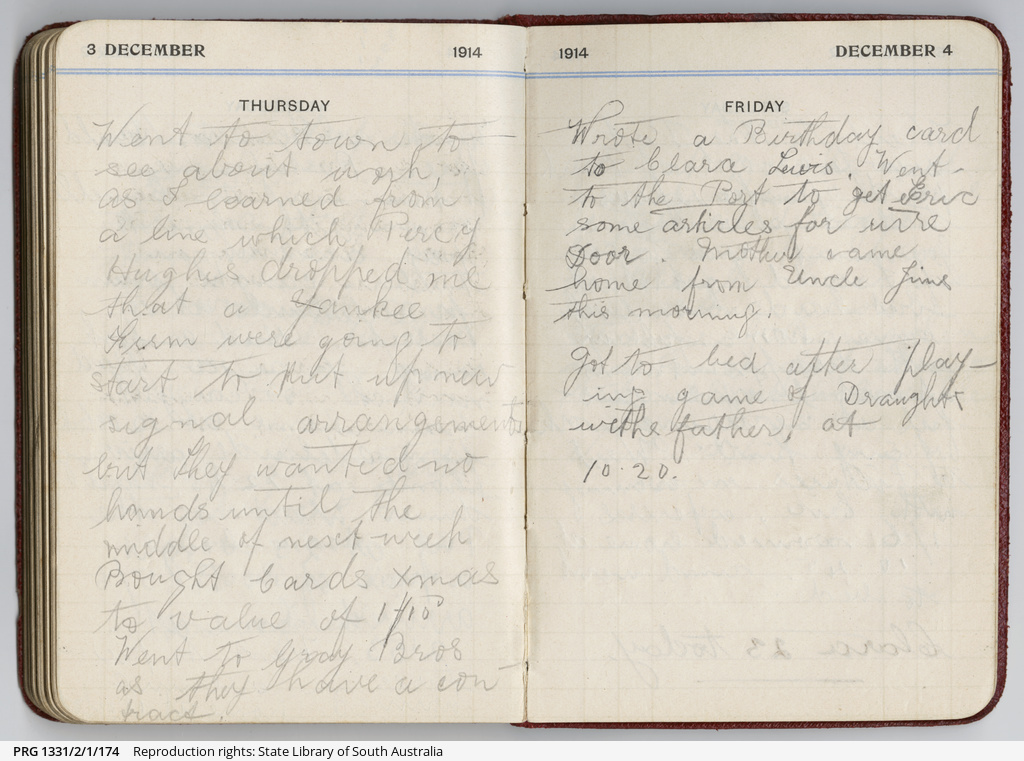 3 DECEMBER 1914
THURSDAY
Went to town to
see about work,
as I learned from
a line which Percy
Hughes dropped me
that a Yankee
Firm were going to
start to put up new
signal arrangements
but they wanted no
hands until the
middle of next week
Bought Cards Xmas
to value of 1/10
Went to Gray Bros
as they have a con
tract.
1914 DECEMBER 4
FRIDAY
Wrote a Birthday card
to Clara Lewis. Went
to the Port to get Eric
some articles for wire
Door. Mother came
home from Uncle Jims
this morning.
Got to bed after play-
ing game of Draughts
withe father, at
10.20.
Clara 23 today
PRG 1331/2/1/174 Reproduction rights: State Library of South Australia